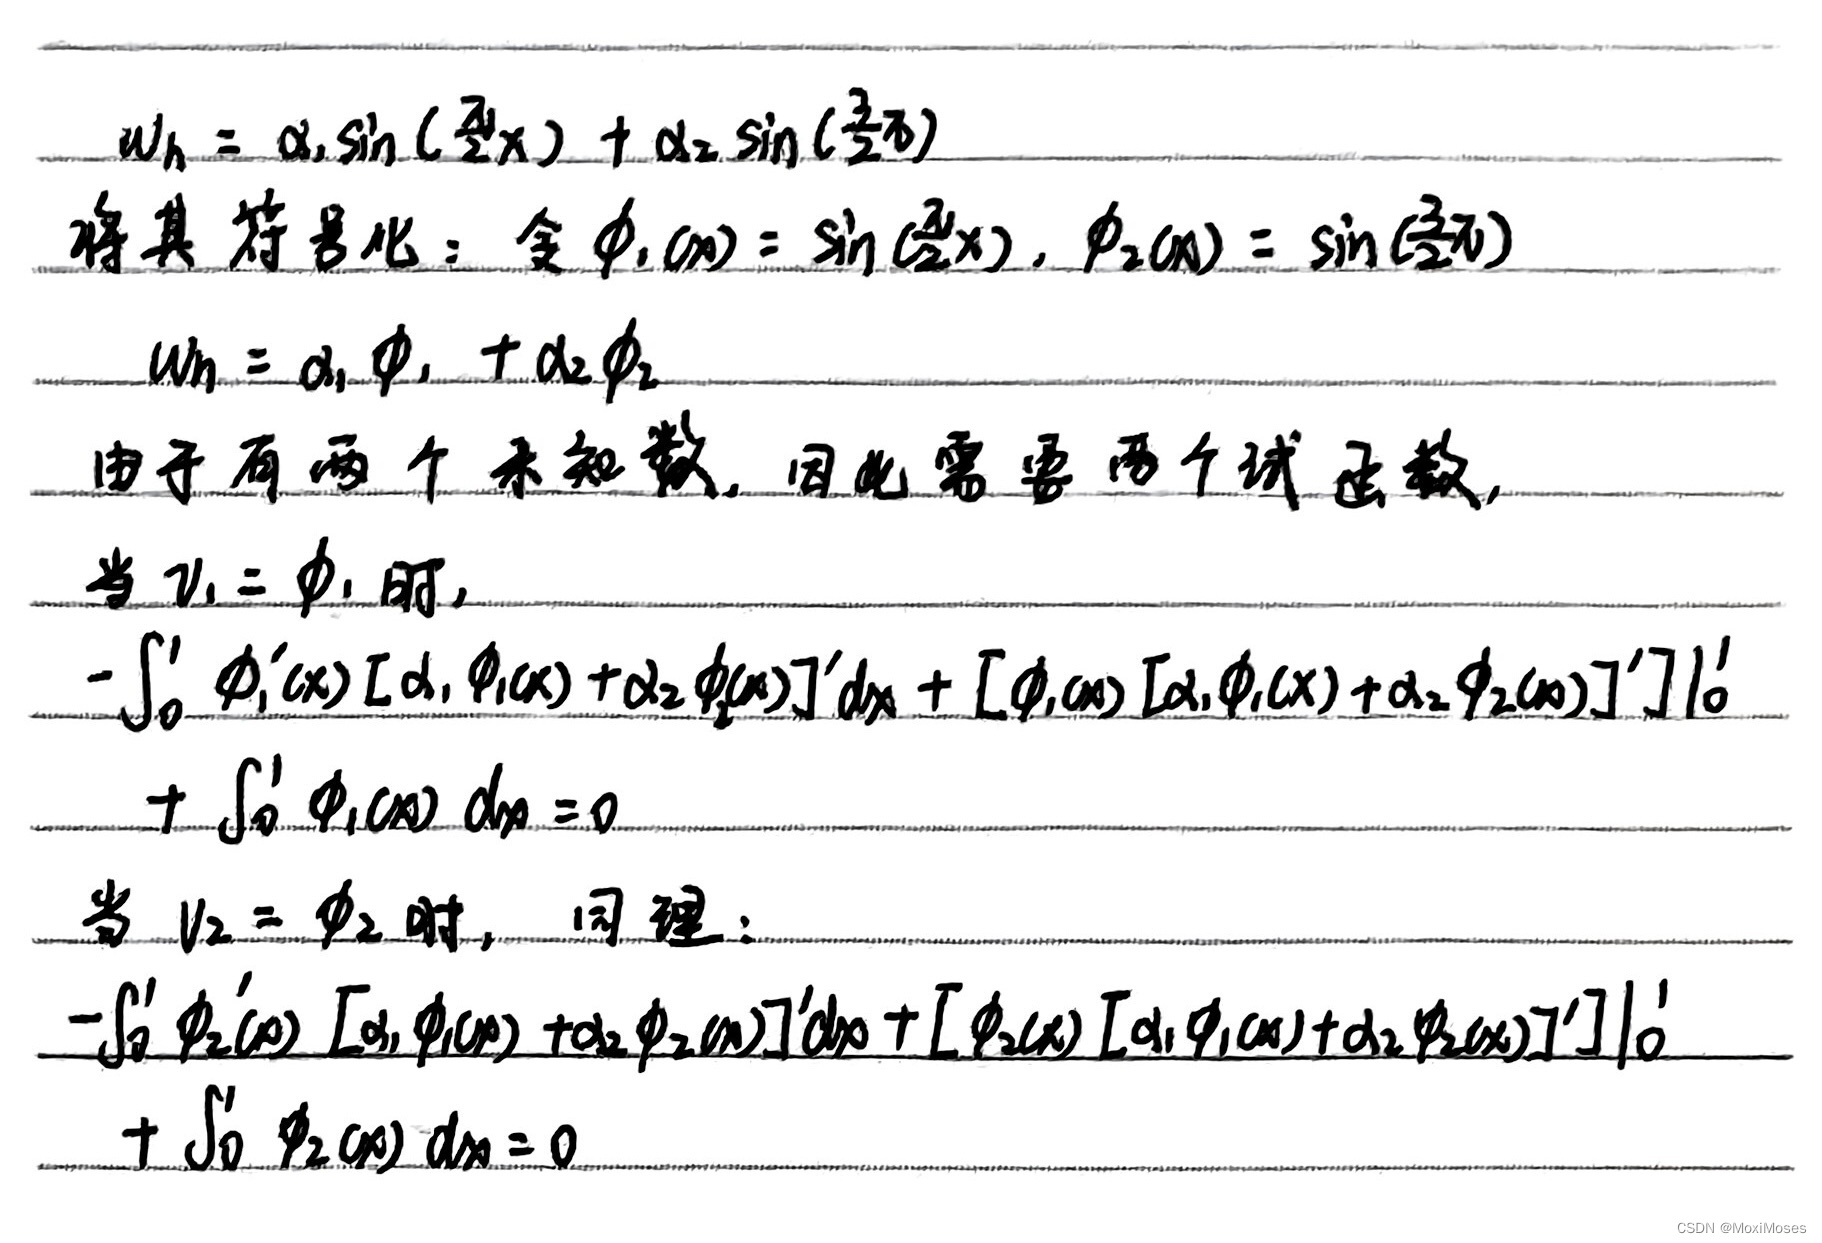 wₕ = α₁ sin(π/2 x) + α₂ sin(3/2 π)
将其符号化：令 ϕ₁(x) = sin(π/2 x), ϕ₂(x) = sin(3/2 π)
wₕ = α₁ ϕ₁ + α₂ ϕ₂
由于有两个未知数，因此需要两个试函数，
当 v₁ = ϕ₁ 时，
-∫₀¹ ϕ₁'(x) [α₁ ϕ₁(x) + α₂ ϕ₂(x)]' dx + [ϕ₁(x) [α₁ ϕ₁(x) + α₂ ϕ₂(x)]']|₀¹
+ ∫₀¹ ϕ₁(x) dx = 0
当 v₂ = ϕ₂ 时，同理：
-∫₀¹ ϕ₂'(x) [α₁ ϕ₁(x) + α₂ ϕ₂(x)]' dx + [ϕ₂(x) [α₁ ϕ₁(x) + α₂ ϕ₂(x)]']|₀¹
+ ∫₀¹ ϕ₂(x) dx = 0
CSDN @MoxiMoses